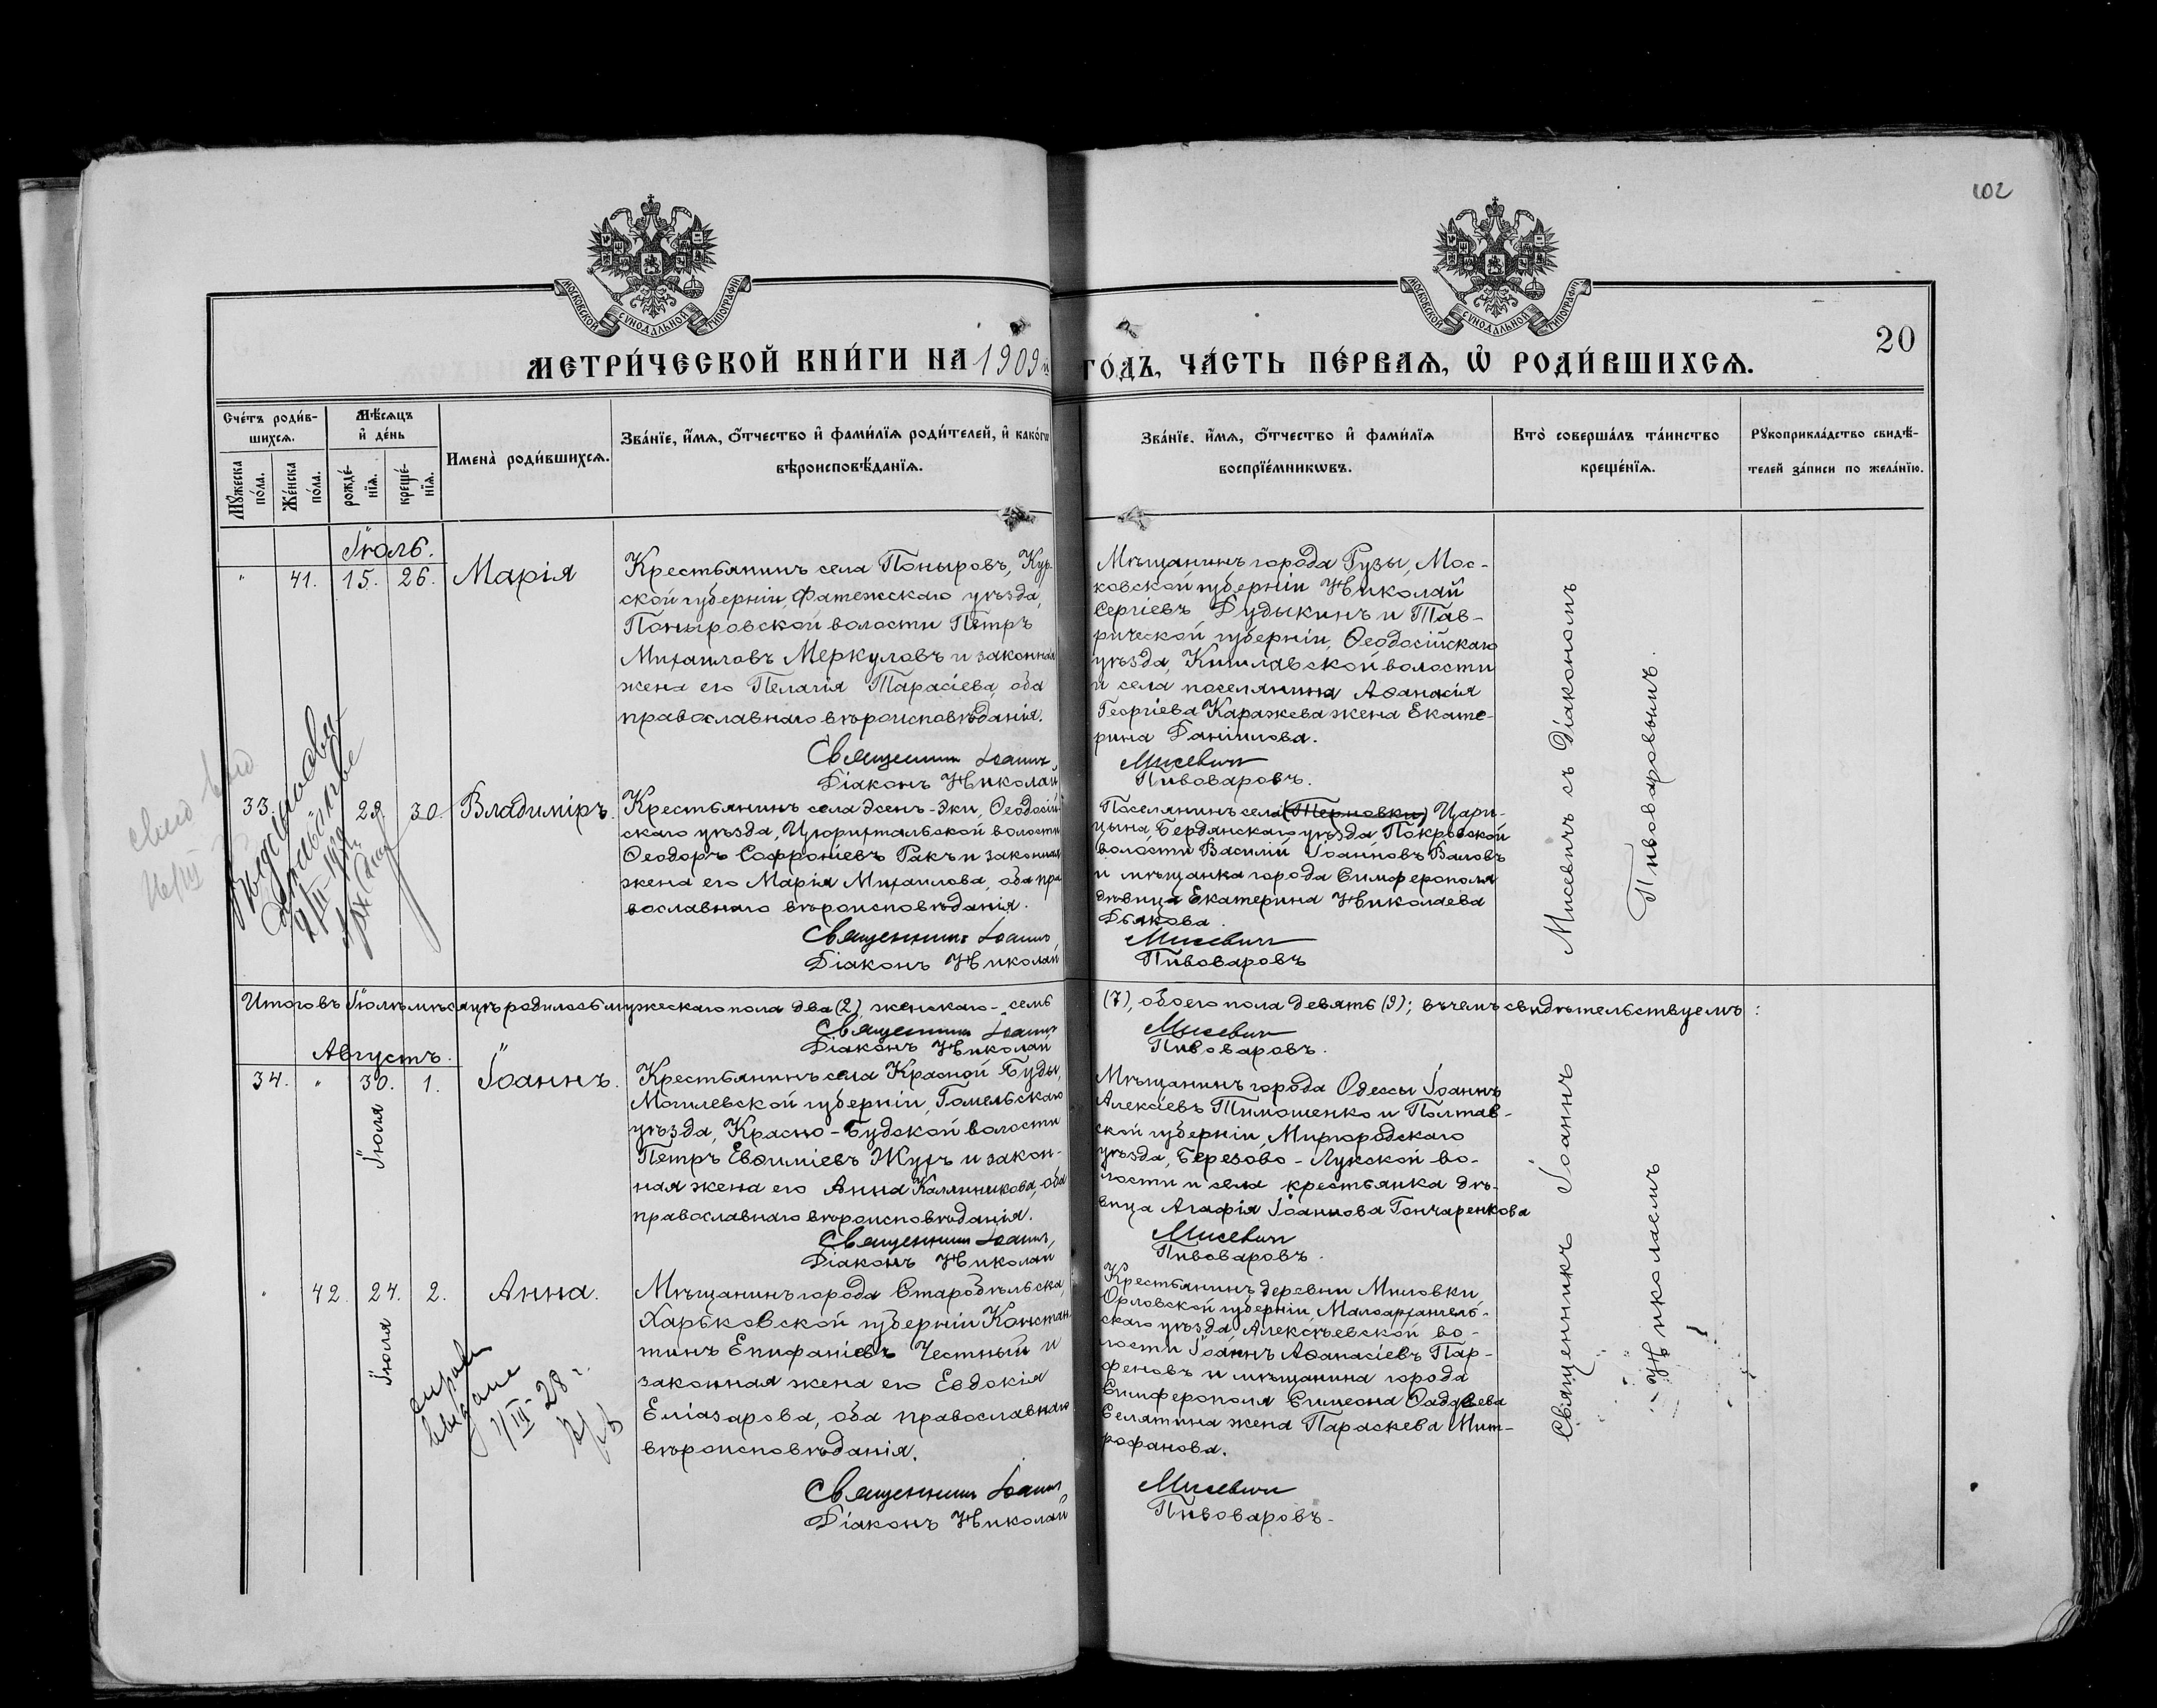 102
МОСКОВСКОЙ СѴНОДАЛЬНОЙ ТИПОГРАФІИ
МОСКОВСКОЙ СѴНОДАЛЬНОЙ ТИПОГРАФІИ
20
МЕТРИ́ЧЕСКОЙ КНИ́ГИ НА 1909 й ГО́ДЪ, ЧА́СТЬ ПЕ́РВАѦ, Ѡ҆ РОДИ́ВШИХСѦ.
Сче́тъ роди́в-
шихсѧ.
Мꙋ́жеска
по́ла.
Же́нска
по́ла.
Мѣ́сѧцъ
и҆ де́нь
рожде́-
нїѧ.
креще́-
нїѧ.
Имена̀ роди́вшихсѧ.
Зва́нїе, и҆́мѧ, ѻ҆́тчество и҆ фами́лїѧ роди́телей, и҆ како́гѡ
вѣроисповѣ́данїѧ.
Зва́нїе, и҆́мѧ, ѻ҆́тчество и҆ фами́лїѧ
воспрїе́мникѡвъ.
Кто̀ соверша́лъ та́инство
креще́нїѧ.
Рꙋкоприкла́дство свидѣ́-
телей за́писи по жела́нїю.
Іюль.
" 41. 15. 26. Марія
Крестьянинъ села Поныровъ, Кур-
ской губерніи, Фатежскаго уѣзда,
Поныровской волости Петръ
Михаиловъ Меркуловъ и законная
жена его Пелагія Тарасіева, оба
православнаго вѣроисповѣданія.
Священникъ Іоаннъ
Діаконъ Николай
Мѣщанинъ города Рузы, Мос-
ковской губерніи Николай
Сергіевъ Дудыкинъ и Тав-
рической губерніи, Ѳеодосійскаго
уѣзда, Кишлавской волости
и села поселянина Аѳанасія
Георгіева Каражева жена Екате-
рина Даніилова.
Мисевичъ
Пивоваровъ.
33. 29. 30. Владиміръ.
Крестьянинъ села Эсенъ-Эки, Ѳеодосій-
скаго уѣзда, Цюрихтальской волости
Ѳеодоръ Софроніевъ Ракъ и законная
жена его Марія Михаилова, оба пра
вославнаго вѣроисповѣданія.
Священникъ Іоаннъ
Діаконъ Николай
Поселянинъ села (Терновки) Цари-
цына, Бердянскаго уѣзда Покровской
волости Василій Іоанновъ Валовъ
и мѣщанка города Симферополя
дѣвица Екатерина Николаева
Дьякова.
Мисевичъ
Пивоваровъ
Мисевичъ съ Діакономъ
Пивоваровымъ.
Итого въ Іюлѣ мѣсяцѣ родилось мужескаго пола два (2), женскаго - семь (7), обоего пола девять (9); въ чемъ свидѣтельствуемъ:
Священникъ Іоаннъ Мисевичъ
Діаконъ Николай Пивоваровъ.
Августъ.
34. " 30. 1. Іоаннъ.
Іюля
Крестьянинъ села Красной Буды,
Могилевской губерніи, Гомельскаго
уѣзда, Красно-Будской волости
Петръ Евѳиміевъ Журъ и закон-
ная жена его Анна Каллиникова, оба
православнаго вѣроисповѣданія.
Священникъ Іоаннъ,
Діаконъ Николай
Мѣщанинъ города Одессы Іоаннъ
Алексіевъ Тимошенко и Полтав-
ской губерніи, Миргородскаго
уѣзда, Березово-Лукской во-
лости и села крестьянка дѣ-
вица Агафія Іоаннова Гончаренкова
Мисевичъ
Пивоваровъ.
" 42. 24. 2. Анна.
Іюля
1/III-28 г.
Мѣщанинъ города Старобѣльска,
Харьковской губерніи Констан-
тинъ Епифаніевъ Честный и
законная жена его Евдокія
Еліазарова, оба православнаго
вѣроисповѣданія.
Священникъ Іоаннъ,
Діаконъ Николай
Крестьянинъ деревни Миловки,
Орловской губерніи, Малоархангель-
скаго уѣзда, Алексѣевской во-
лости Іоаннъ Аѳанасіевъ Пар-
феновъ и мѣщанина города
Симферополя Симеона Ѳаддеева
Селятина жена Параскева Мит-
рофанова.
Мисевичъ
Пивоваровъ.
Священникъ Іоаннъ
Николаемъ